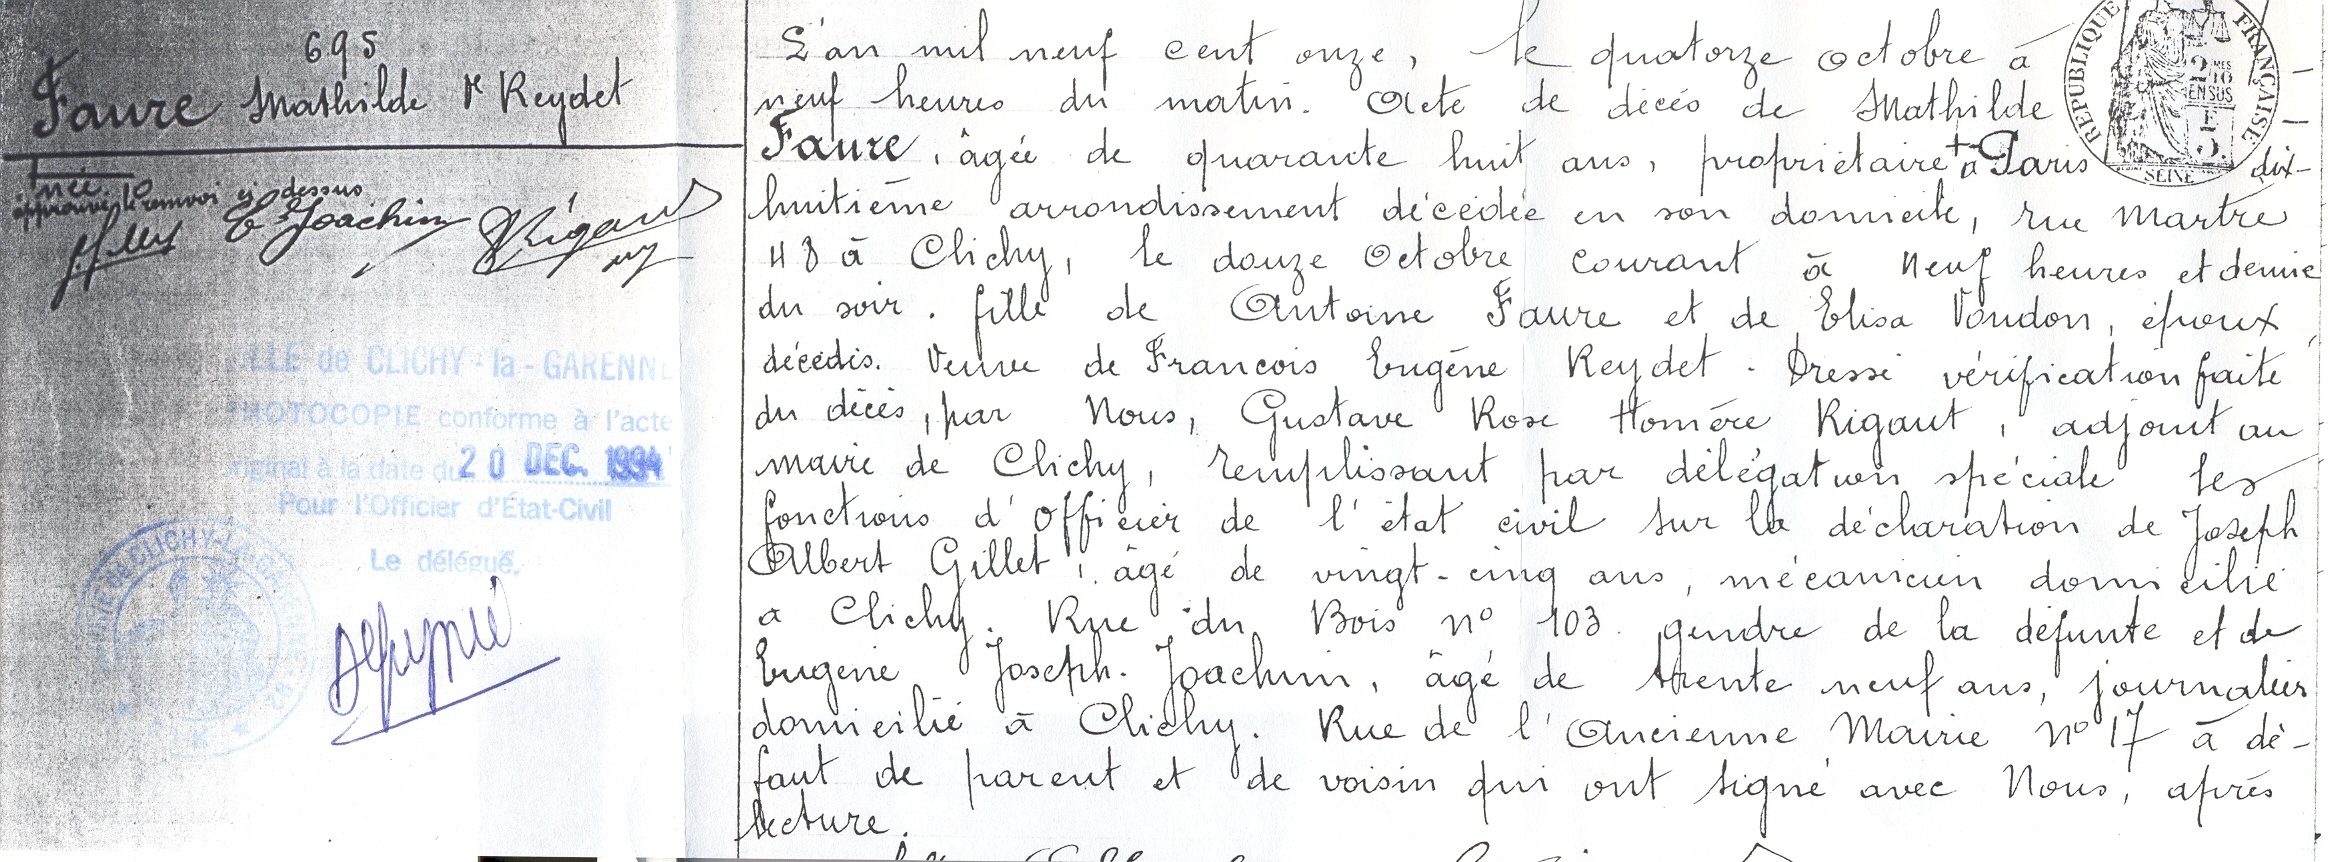 695
Faure Mathilde Ve Reydet
née.
approuvé le renvoi ci dessus
Gillet E. Joachim Rigaut
VILLE de CLICHY-la-GARENNE
PHOTOCOPIE conforme à l'acte
original à la date du 20 DEC. 1994
Pour l'Officier d'État-Civil
Le délégué,
MAIRIE DE CLICHY-LA-GARENNE
L'an mil neuf cent onze, le quatorze Octobre à
neuf heures du matin. Acte de décés de Mathilde
Faure, âgée de quarante huit ans, propriétaire + à Paris dix-
huitième arrondissement décédée en son domicile, rue Martre
48 à Clichy, le douze Octobre courant à Neuf heures et demie
du soir. fille de Antoine Faure et de Elisa Voudon, époux
décédés. Veuve de Francois Eugène Reydet. Dressé vérification faite
du décés, par Nous, Gustave Rose Homère Rigaut, adjoint au
maire de Clichy, remplissant par délégation spéciale les
fonctions d'Officier de l'état civil sur la déclaration de Joseph
Albert Gillet, âgé de vingt-cinq ans, mécanicien domicilié
a Clichy. Rue du Bois n° 103 gendre de la défunte et de
Eugène Joseph. Joachim, âgé de trente neuf ans, journalier
domicilié à Clichy. Rue de l'Ancienne Mairie N° 17 à dé-
faut de parent et de voisin qui ont signé avec Nous, aprés
lecture.
RÉPUBLIQUE FRANÇAISE
SEINE